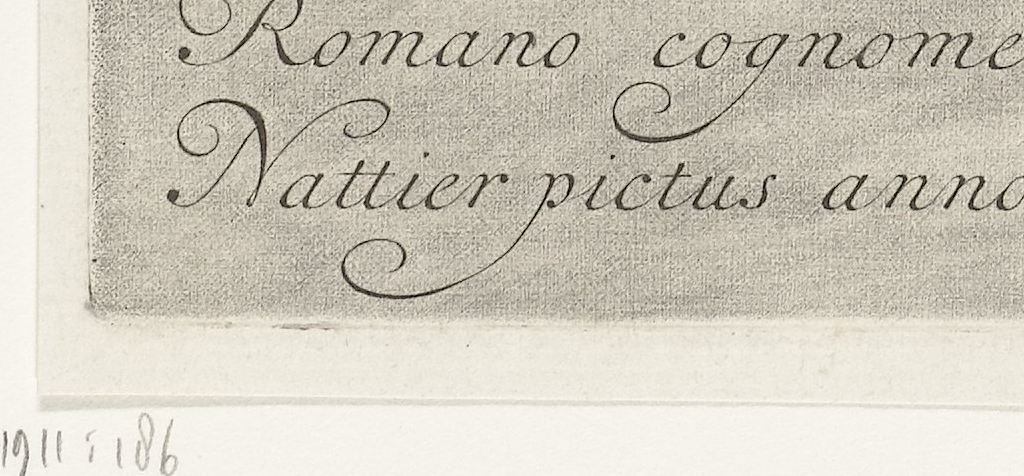 Romano cognome
Nattier pictus anno
1911:186